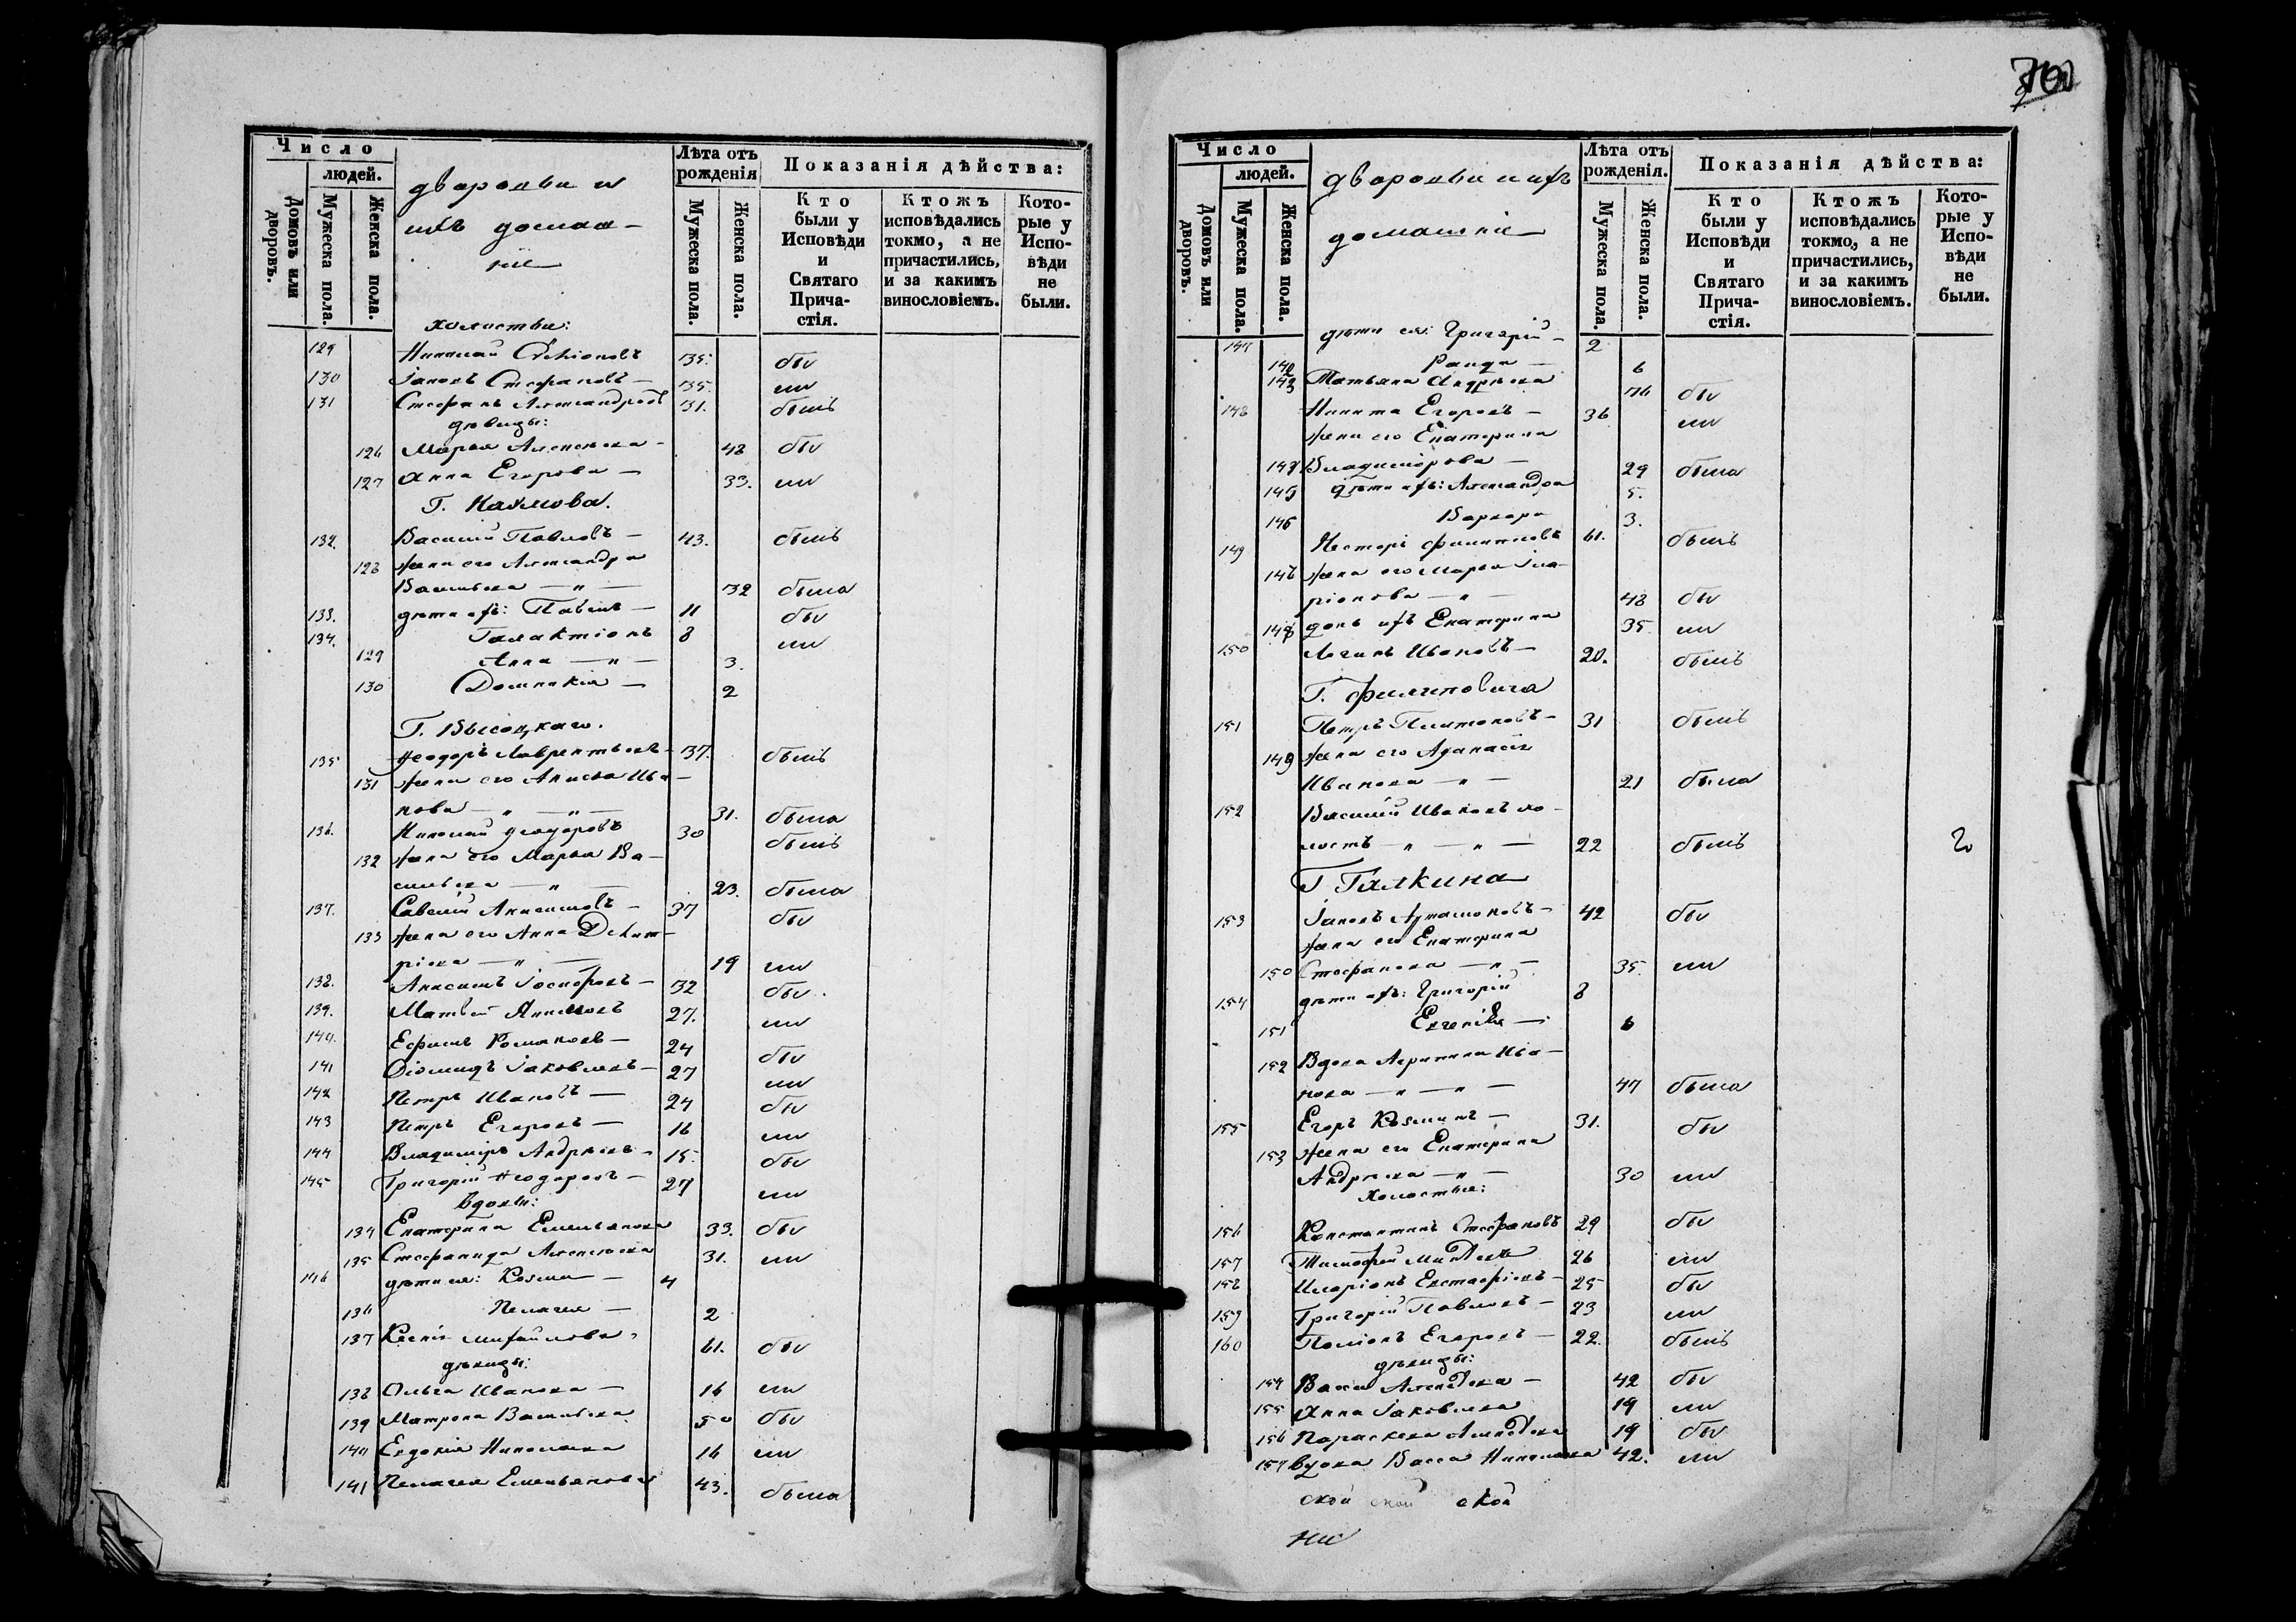 Число
людей.
Домовъ или дворовъ.
Мужеска пола.
Женска пола.
дворовыи и
ихъ домаш-
ніе
Лѣта отъ
рожденія
Мужеска пола.
Женска пола.
Показанія дѣйства:
Кто
были у
Исповѣди
и
Святаго
Прича-
стія.
Ктожъ
исповѣдались
токмо, а не
причастились,
и за какимъ
винословіемъ.
Кото-
рые у
Испо-
вѣди
не
были.
холостыи:
129 Николай 35. бы
130 Іаковъ Стефановъ — 35. ли
131 Стефанъ Александровъ 31. былъ
дѣвицы:
126 Марья Алексѣева — 48 бы
127 Анна Егорова — 33. ли
Г. Наумова.
132. Василій Павловъ — 43. былъ
128 жена его Александра
Васильева — „ — 32 была
133. дѣти ихъ: Павелъ — 11 бы
134. Галактіонъ 8 ли
129 Анна — „ — 3.
130 Домникія — 2
Г. Высоцкаго.
135 Ѳеодоръ Лаврентьевъ — 37. былъ
131 жена его Анисья Ива-
нова — „ — „ — 31. была
136. Николай Ѳеодоровъ 30 былъ
132 жена его Марья Ва-
сильева — „ — 23. была
137. Савелій Анисимовъ — 37 бы
133 жена его Анна Димит-
ріева — „ — 19 ли
138. Анисимъ Іосифовъ — 32 бы
139. Матвей 27. ли
140. Ефимъ Романовъ — 24 бы
141 Діомидъ Іаковлевъ — 27 ли
142 Петръ Ивановъ — 24 бы
143 Петръ Егоровъ — 16 ли
144 Владимиръ Андреевъ — 15. бы
145 Григорій Ѳеодоровъ — 27 ли
вдовы:
134 Екатерина Емельянова 33. бы
135 Стефанида Алексѣева 31. ли
146 дѣти ея: Козма — 4
136 Пелагея — 2
137 Ксенія Михайлова 61. бы
дѣвицы:
138 Ольга Иванова — 16 ли
139 Матрона Васильева 50 бы
140 Евдокія Николаева 16 ли
141 Пелагея Емельянова 43. была
Число
людей.
Домовъ или дворовъ.
Мужеска пола.
Женска пола.
дворовыи ихъ
домашніе
Лѣта отъ
рожденія.
Мужеска пола.
Женска пола.
Показанія дѣйства:
Кто
были у
Исповѣди
и
Святаго
Прича-
стія.
Ктожъ
исповѣдались
токмо, а не
причастились,
и за какимъ
винословіемъ.
Кото-
рые у
Испо-
вѣди
не
были.
147 дѣти ея: Григорій — 2
142 — 6
143 Татьяна Андреева 76 бы
148 Никита Егоровъ — 36 ли
жена его Екатерина
144 Владимірова — 29 была
145 дѣти ихъ: Александра 5.
146 Варвара 3.
149 Несторъ Филиповъ 61. былъ
147 жена его Марья Ила-
ріонова — „ — 48 бы
148 дочь ихъ Екатерина 35. ли
150 Логинъ Ивановъ — 20. былъ
Г. Филиповича
151 Петръ Платоновъ — 31 былъ
149 жена его Афанасія
Иванова — „ — 21 была
152 Василій Ивановъ хо-
лостъ — „ — „ — 22 былъ 2
Г Галкина
153 Іаковъ Артамоновъ — 42 бы
жена его Екатерина
150 Стефанова — „ — 35. ли
154 дѣти ихъ: Григорій 8
151 Евгенія — 6
152 Вдова Агрипина Ива-
нова — „ — „ — 47 была
155 Егоръ Козминъ — 31. бы
153 жена его Екатерина
Андреева — „ — 30 ли
холостыи:
156 Константинъ Стефановъ 29 бы
157 Тимофей 26 ли
158 Иларіонъ Евстафіевъ — 25 бы
159 Григорій Павловъ — 23 ли
160 Егоровъ — 22. былъ
дѣвицы:
154 Васса Алексѣева — 42 бы
155 Анна Іаковлева 19 ли
156 Параскева Алексѣева 19 бы
157 вдова Васса Николаева 42. ли
ской ской ской